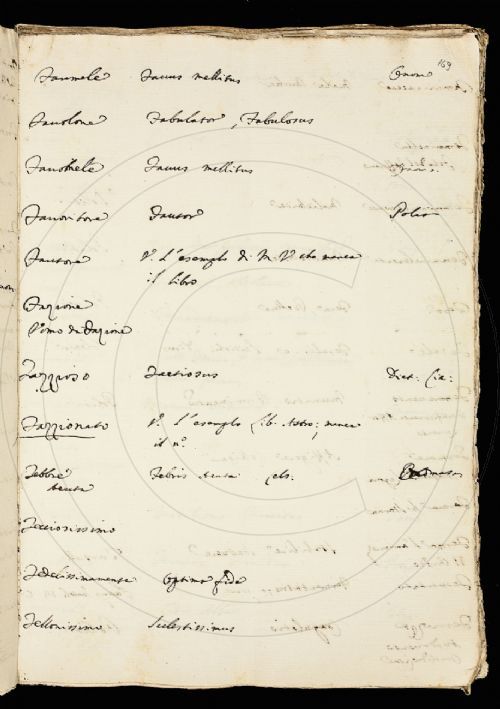 169
Faumele Fauus mellitus
Fauolone Fabulator, Fabulosus
Fauomele Fauus mellitus
Fauoritore Fautor
Fautore V. L'esemplo di M. V. che manca
il libro
Fazione
Vomo di Fazione
Fazzioso Factiosus Dict:
Fazzionato V. L'esemplo Lib. Astro; manca
il n.
Febbre Febris acuta cels.
acuta
Fecciosissimo
Fedelissimamente Optima fide
Fellonissimo Scelestissimus